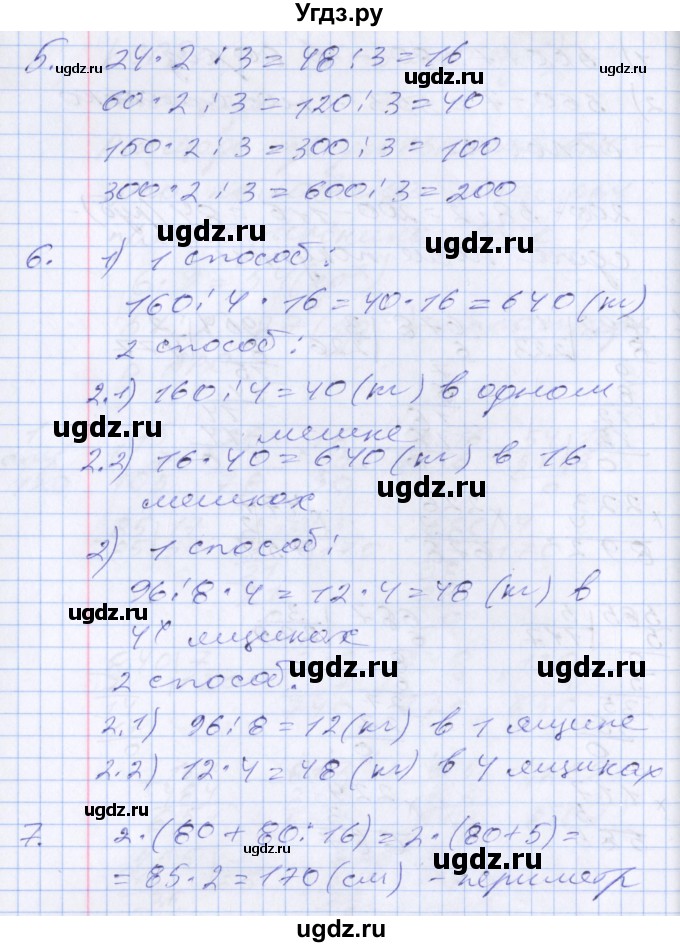 Угдз.ру
5. 24·2:3=48:3=16
ugdz.ru
ugdz.ru
60·2:3=120:3=40
150·2:3=300:3=100
ugdz.ru
300·2:3=600:3=200
ugdz.ru
ugdz.ru
6. 1) 1 способ:
160:4·16=40·16=640(кг)
2 способ:
ugdz.ru
2.1) 160:4=40(кг) в одном
ugdz.ru
мешке
2.2) 16·40=640(кг) в 16
ugdz.ru
мешках
2) 1 способ:
ugdz.ru
96:8·4=12·4=48(кг) в
ugdz.ru
4х ящиках
ugdz.ru
ugdz.ru
2 способ:
2.1) 96:8=12(кг) в 1 ящике
ugdz.ru
2.2) 12·4=48(кг) в 4 ящиках
ugdz.ru
7. 2·(80+80:16)=2·(80+5)=
ugdz.ru
ugdz.ru
=85·2=170(см) - периметр
ugdz.ru